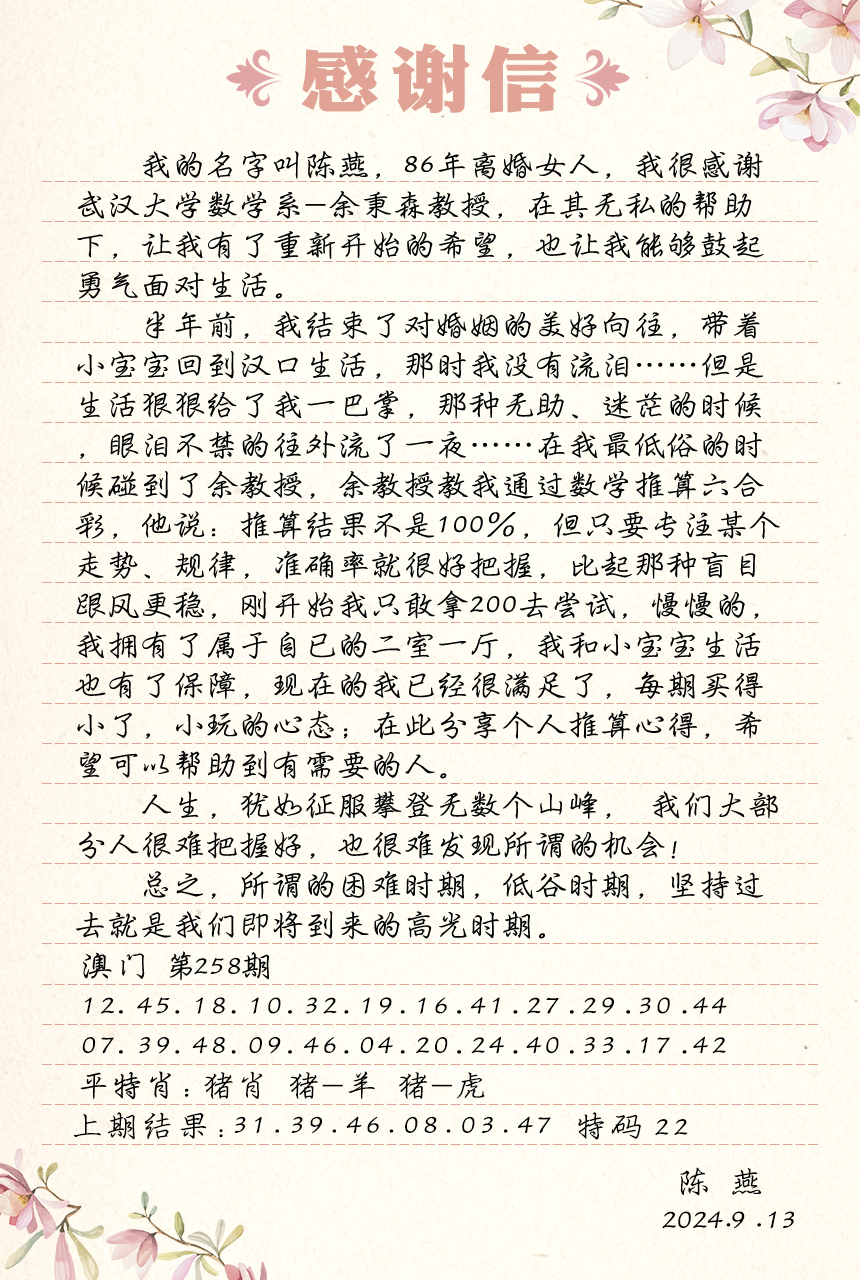 感谢信
我的名字叫陈燕，86年离婚女人，我很感谢
武汉大学数学系—余秉森教授，在其无私的帮助
下，让我有了重新开始的希望，也让我能够鼓起
勇气面对生活。
半年前，我结束了对婚姻的美好向往，带着
小宝宝回到汉口生活，那时我没有流泪……但是
生活狠狠给了我一巴掌，那种无助、迷茫的时候
，眼泪不禁的往外流了一夜……在我最低俗的时
候碰到了余教授，余教授教我通过数学推算六合
彩，他说：推算结果不是100%，但只要专注某个
走势、规律，准确率就很好把握，比起那种盲目
跟风更稳，刚开始我只敢拿200去尝试，慢慢的，
我拥有了属于自已的二室一厅，我和小宝宝生活
也有了保障，现在的我已经很满足了，每期买得
小了，小玩的心态；在此分享个人推算心得，希
望可以帮助到有需要的人。
人生，犹如征服攀登无数个山峰， 我们大部
分人很难把握好，也很难发现所谓的机会！
总之，所谓的困难时期，低谷时期，坚持过
去就是我们即将到来的高光时期。
澳门 第258期
12.45.18.10.32.19.16.41.27.29.30.44
07.39.48.09.46.04.20.24.40.33.17.42
平特肖：猪肖 猪—羊 猪—虎
上期结果：31.39.46.08.03.47 特码 22
陈 燕
2024.9.13